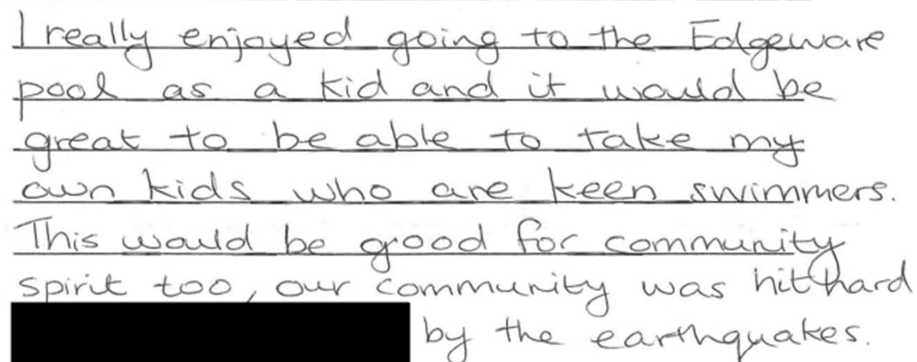 I really enjoyed going to the Edgeware
pool as a kid and it would be
great to be able to take my
own kids who are keen swimmers.
This would be good for community
spirit too, our community was hit hard
by the earthquakes.